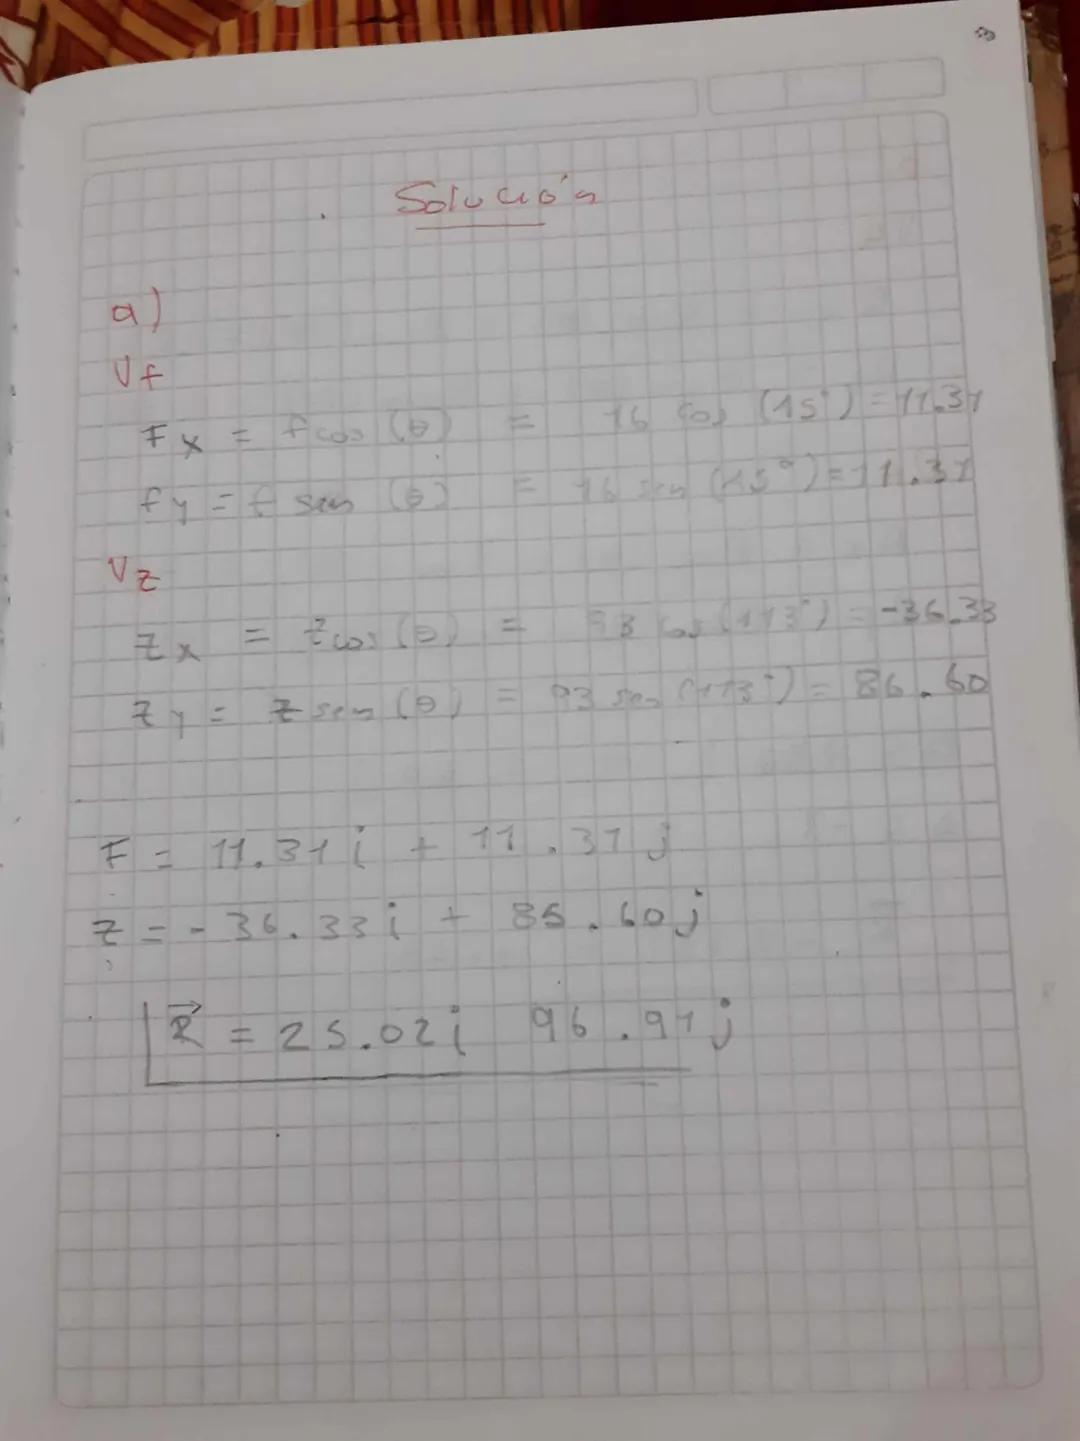 Solución
a)
Vf
Fx = f cos (θ) = 16 cos (45°) = 11.31
fy = f sen (θ) = 16 sen (45°) = 11.31
Vz
Zx = z cos (θ) = 93 cos (113°) = -36.33
Zy = z sen (θ) = 93 sen (113°) = 86.60
F = 11.31 i + 11.31 j
Z = - 36.33 i + 85.60 j
R = 25.02 i 96.91 j